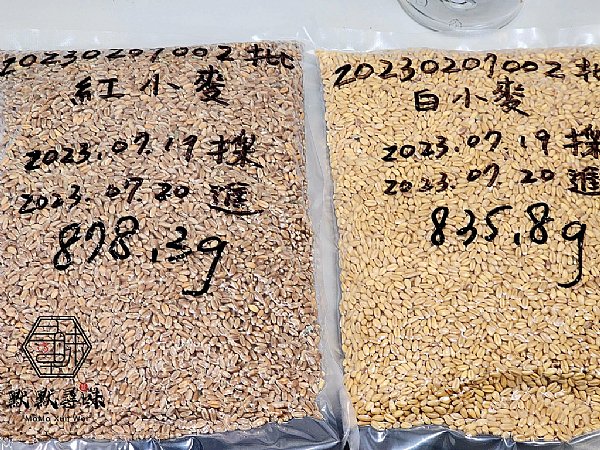 20230207002批
紅小麥
2023.07.19採
2023.07.20進
878.3g
20230207002批
白小麥
2023.07.19採
2023.07.20進
835.8g
默默尋味
MoMo Xun Wei